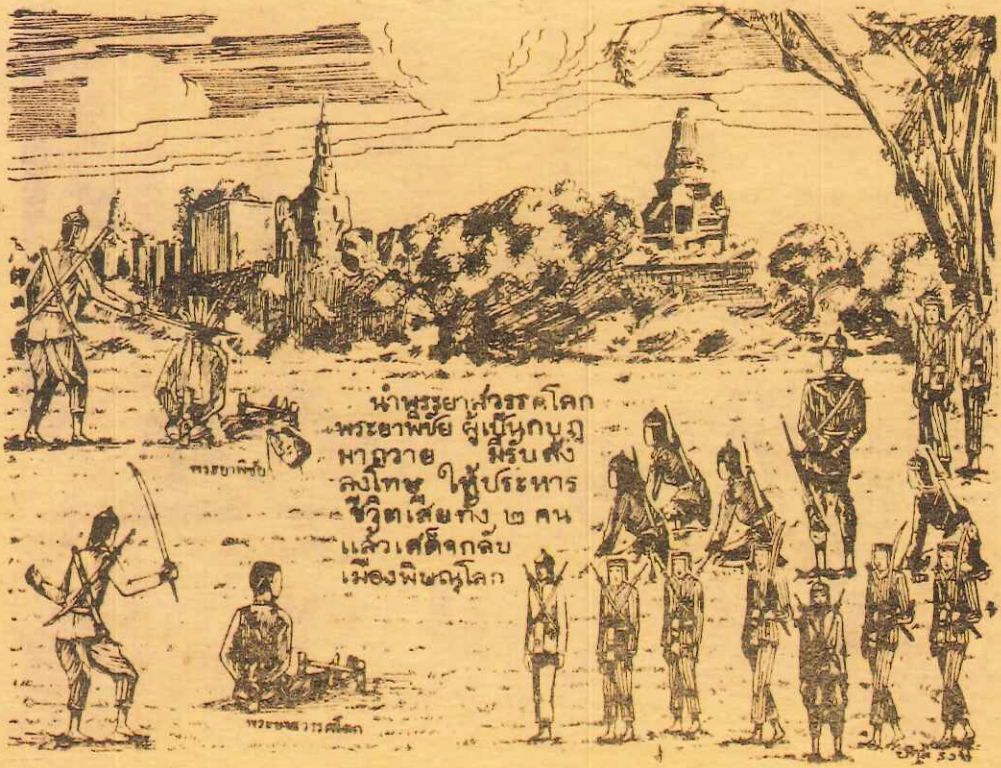 นำพระยาสวรรคโลก
พระยาพิชัย ผู้เป็นกบฏ
มาถวาย มีรับสั่ง
ลงโทษ ให้ประหาร
ชีวิตเสียทั้ง ๒ คน
แล้วเสด็จกลับ
เมืองพิษณุโลก
พระยาพิชัย
พระยาสวรรคโลก